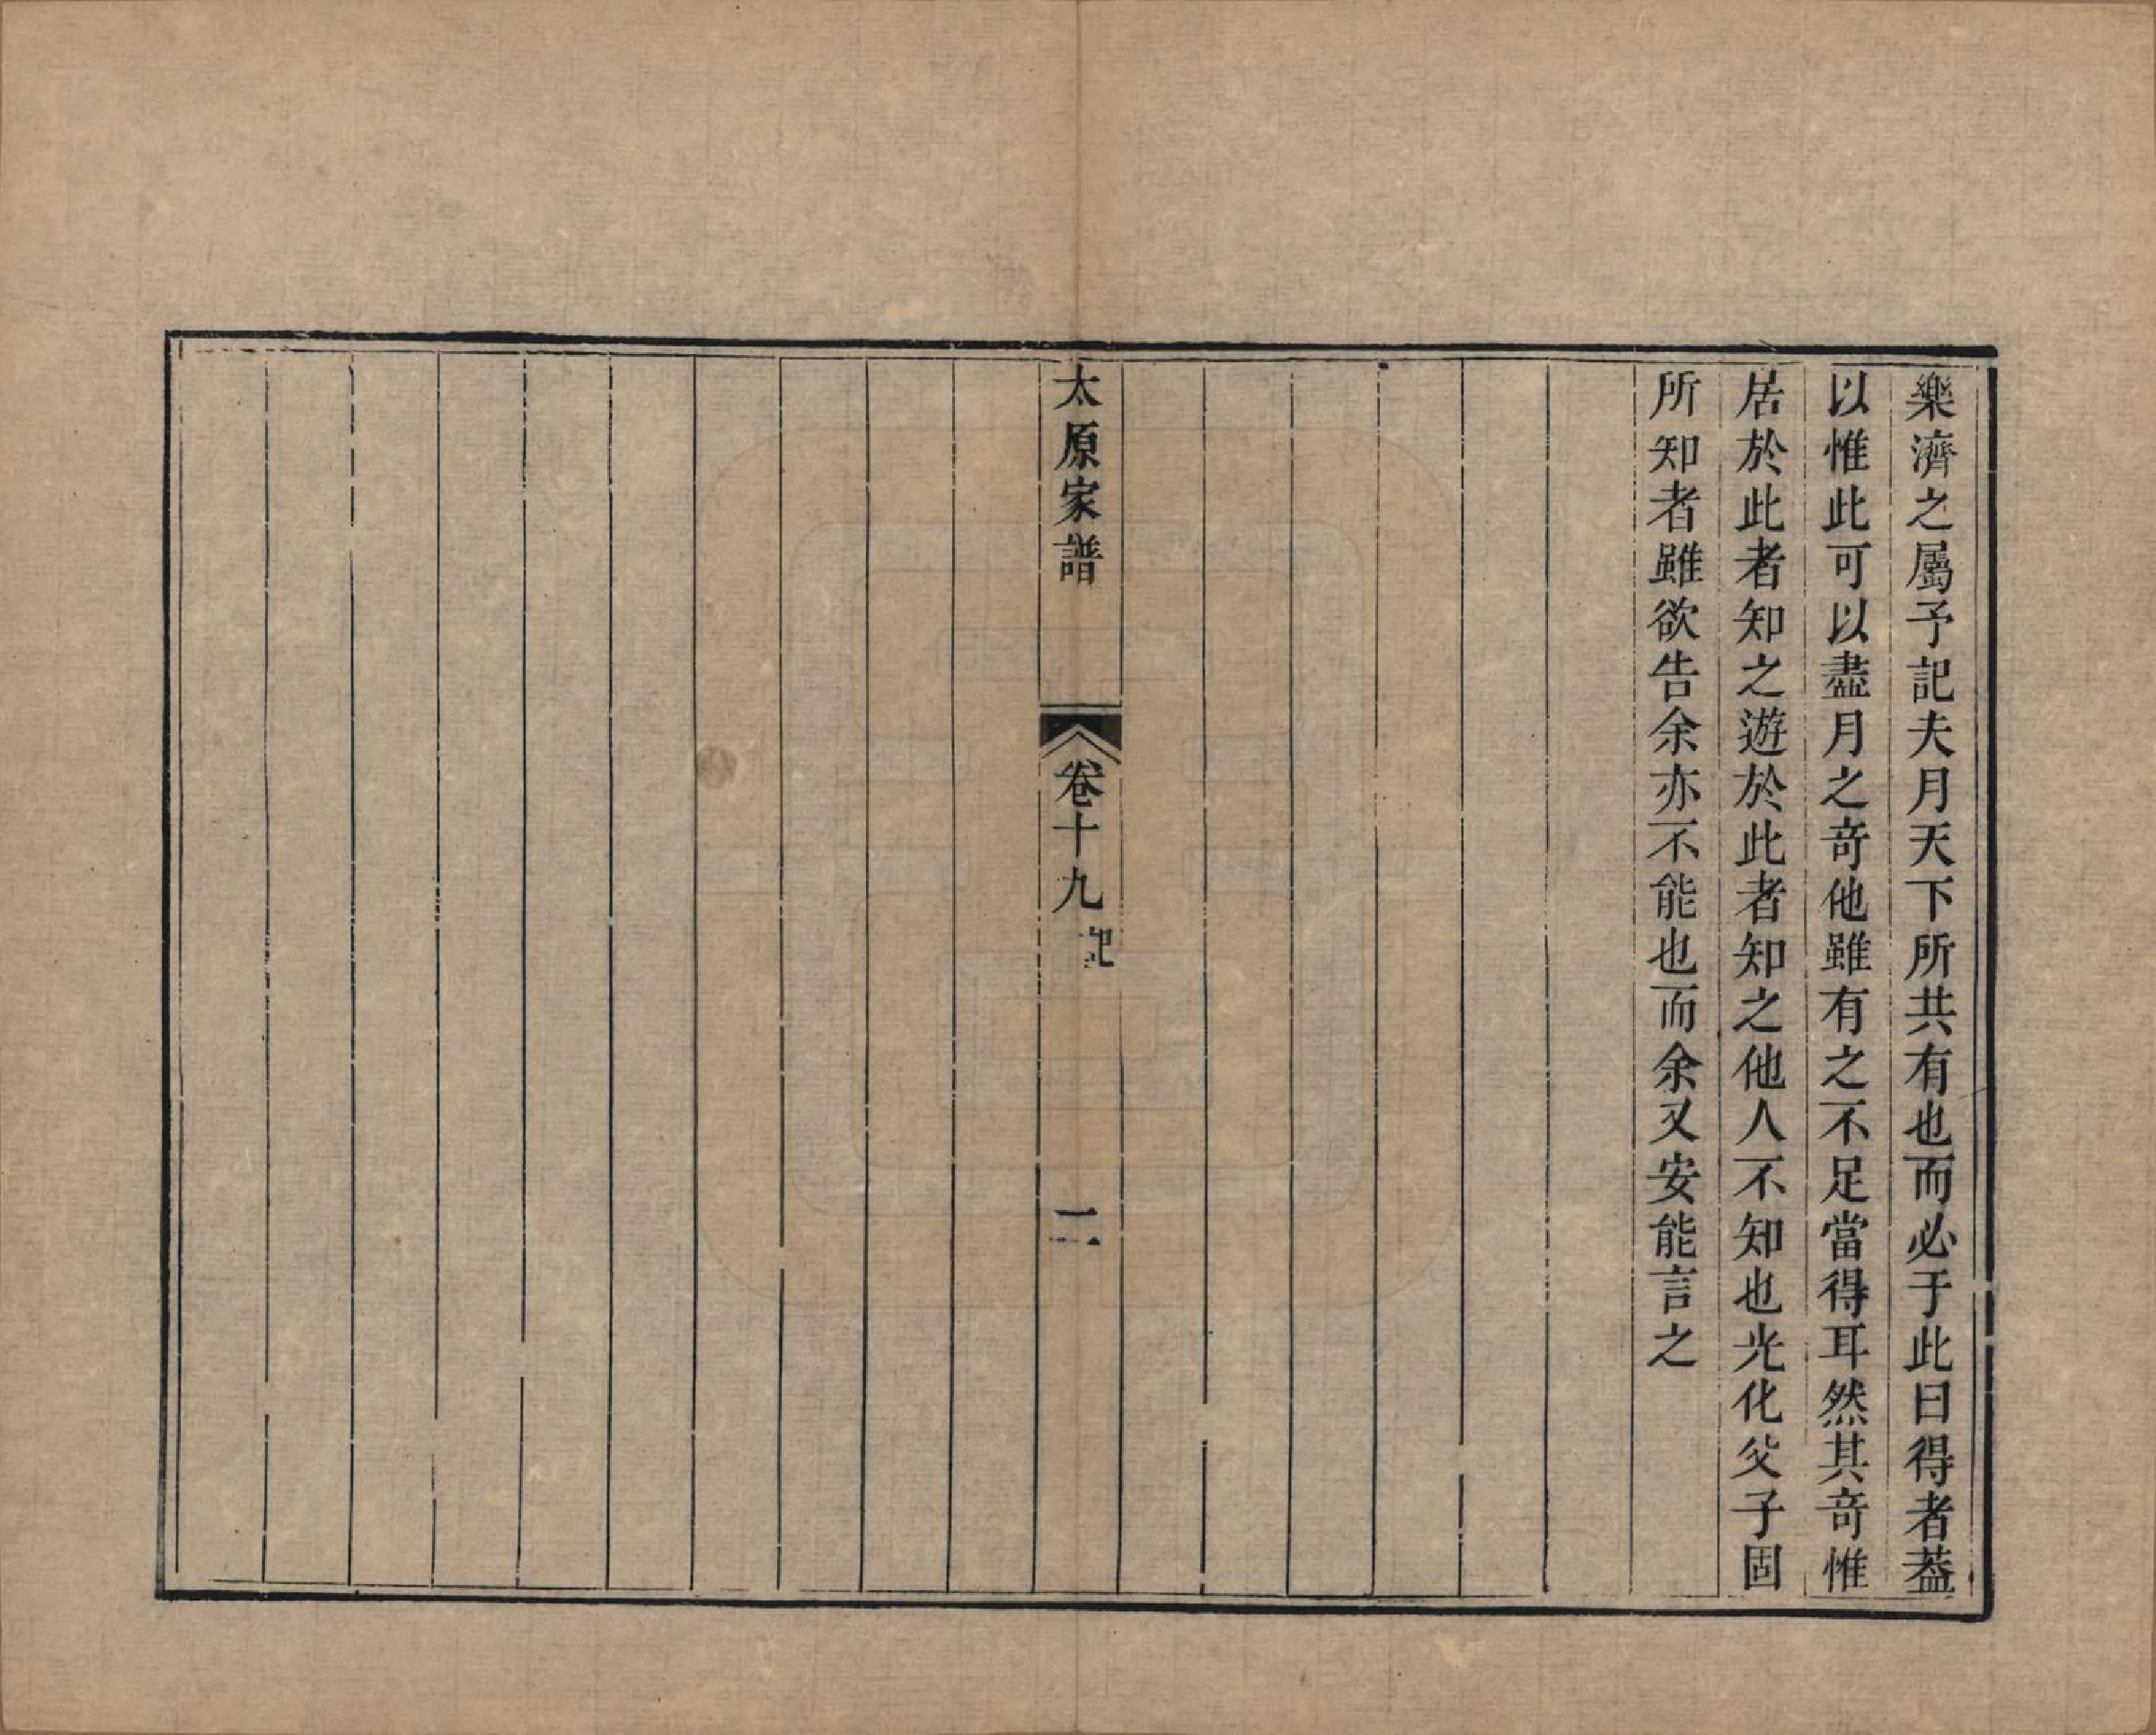 樂濟之屬予記夫月天下所共有也而必于此曰得者葢
以惟此可以盡月之奇他雖有之不足當得耳然其奇惟
居於此者知之遊於此者知之他人不知也光化父子固
所知者雖欲告余亦不能也而余又安能言之
太原家譜
卷十九
記
二